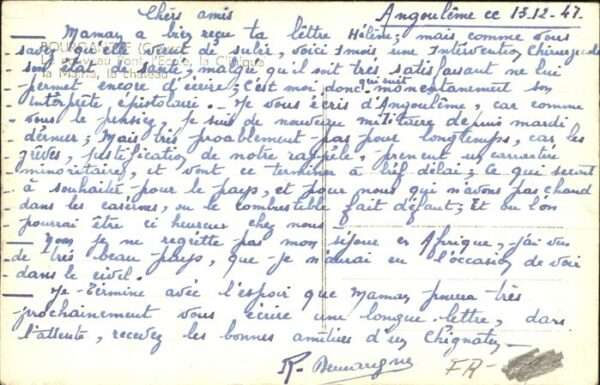 Chers amis Angoulême ce 13.12-47.
Maman a bien reçu ta lettre Hélène; mais comme vous
savez qu'elle vient de subir, voici 3 mois une Intervention
son état de santé, malgré qu'il soit très satisfaisant ne lui
permet encore d'écrire; C'est moi donc qui suis momentanément son
interprète épistolaire. - Je vous écris d'Angoulême, car comme
vous le pensiez, je suis de nouveau militaire depuis mardi
dernier; Mais très proablement - pas pour longtemps, car les
grèves, justification de notre rappele, prennent un carractère
minoritaires, et vont ce terminer à bref délai; Ce qui serait
à souhaité - pour le pays, et pour nous qui n'avons pas chaud
dans les casernes, ou le combustible fait défaut; Et ou l'on
pourrai être ci heureux chez nous
Non je ne regrette pas mon séjour en Afrique, - j'ai vu
de très beau - pays, que - je n'aurai eu l'occasion de voir
dans le civil. -
Je - Termine avec l'espoir que Maman pourra très
prochainement vous écrire une longue - lettre, dans
l'attente, recevez les bonnes amitiées d'un
R.
FR -